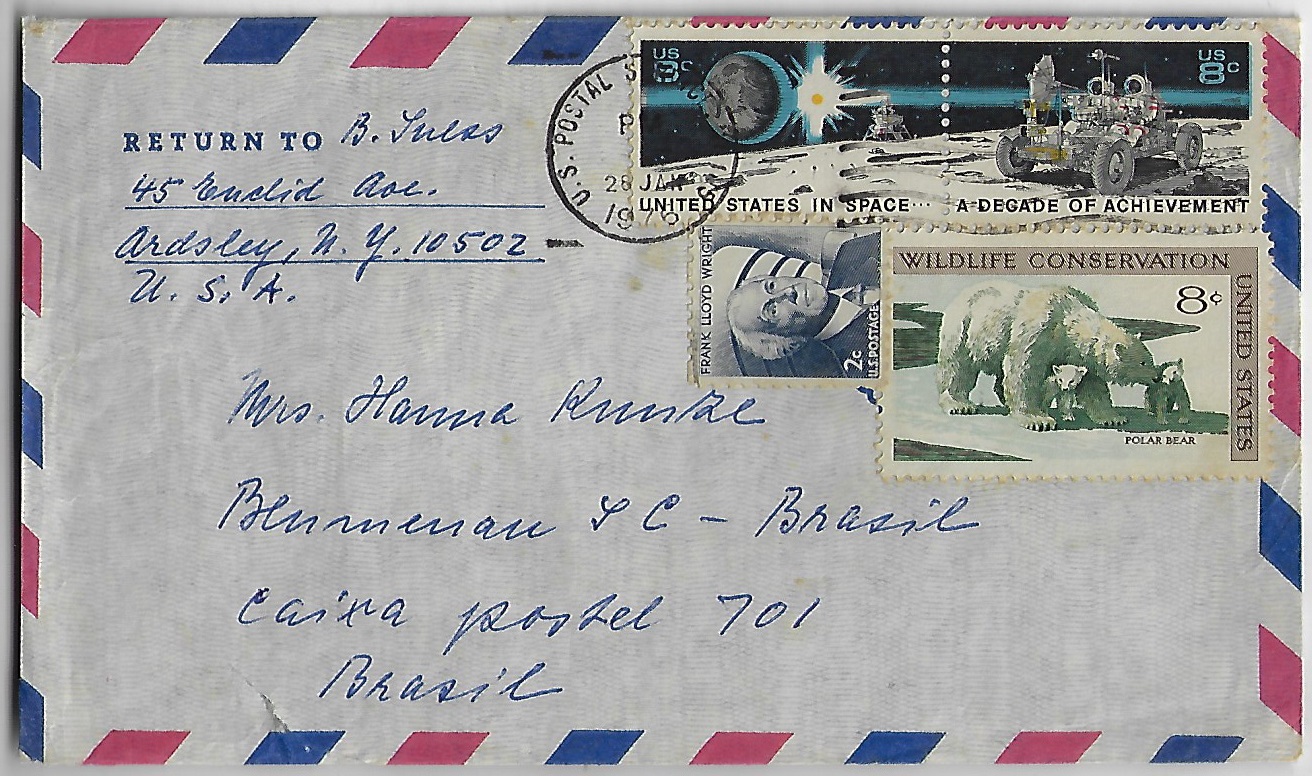 RETURN TO B. Suess
45 Euclid Ave.
Ardsley, N. Y. 10502
U. S. A.
U.S. POSTAL
28 JAN
1976
US 8c
US 8c
UNITED STATES IN SPACE... A DECADE OF ACHIEVEMENT
FRANK LLOYD WRIGHT
2c
U.S. POSTAGE
WILDLIFE CONSERVATION
8¢
UNITED STATES
POLAR BEAR
Mrs. Hanna Kuntze
Blumenau S C - Brasil
Caixa postel 701
Brasil